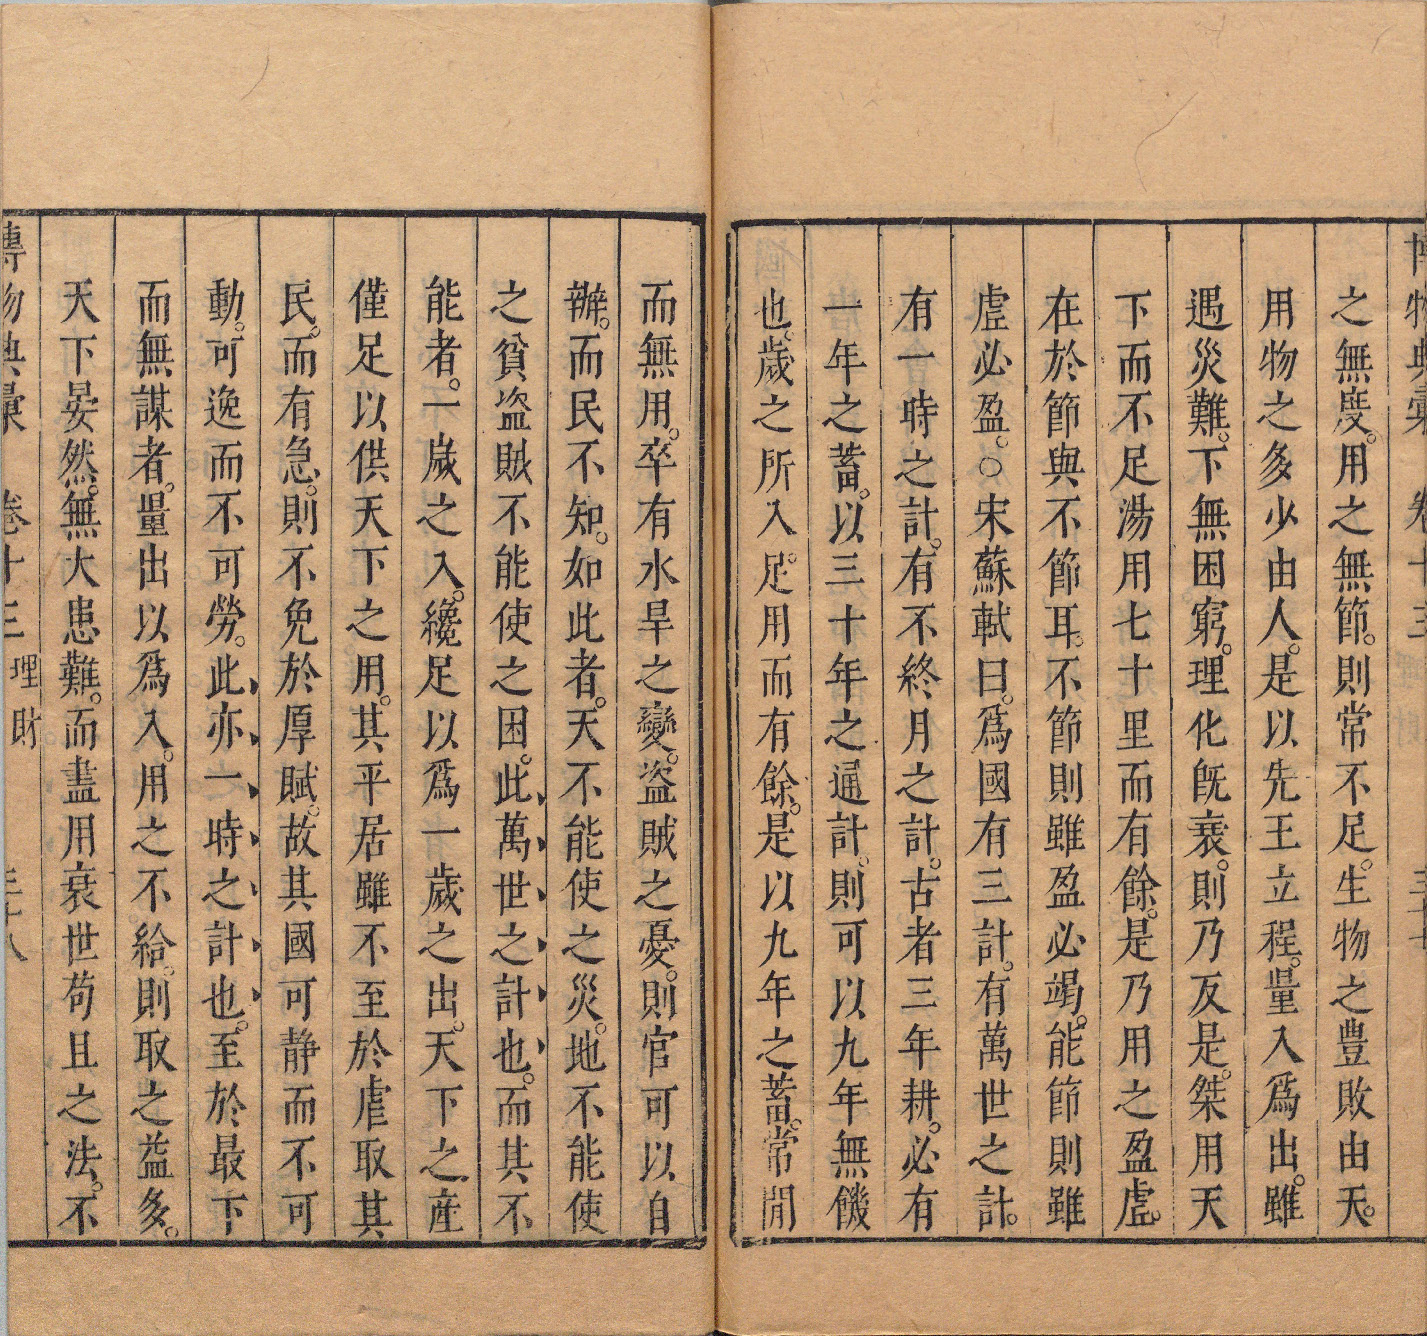 博物典彙 卷十三 理財 三十七
之無度。用之無節。則常不足。生物之豊敗由天。
用物之多少由人。是以先王立程。量入爲出。雖
遇災難。下無困窮。理化旣衰。則乃反是。桀用天
下而不足湯用七十里而有餘。是乃用之盈虛。
在於節與不節耳。不節則雖盈必竭。能節則雖
虛必盈。○宋蘇軾曰。爲國有三計。有萬世之計。
有一時之計。有不終月之計。古者三年耕。必有
一年之蓄。以三十年之通計。則可以九年無饑
也。歲之所入。足用而有餘。是以九年之蓄。常閒
而無用。卒有水旱之變。盗賊之憂。則官可以自
辦。而民不知。如此者。天不能使之災。地不能使
之貧盗賊不能使之困。此萬世之計也。而其不
能者。一嵗之入。纔足以爲一歲之出。天下之産
僅足以供天下之用。其平居雖不至於虐取其
民。而有急。則不免於厚賦。故其國可静而不可
動。可逸而不可勞。此亦一時之計也。至於最下
而無謀者。量出以爲入。用之不給。則取之益多。
天下晏然。無大患難。而盡用衰世苟且之法。不
博物典彙 卷十三 理財 三十八